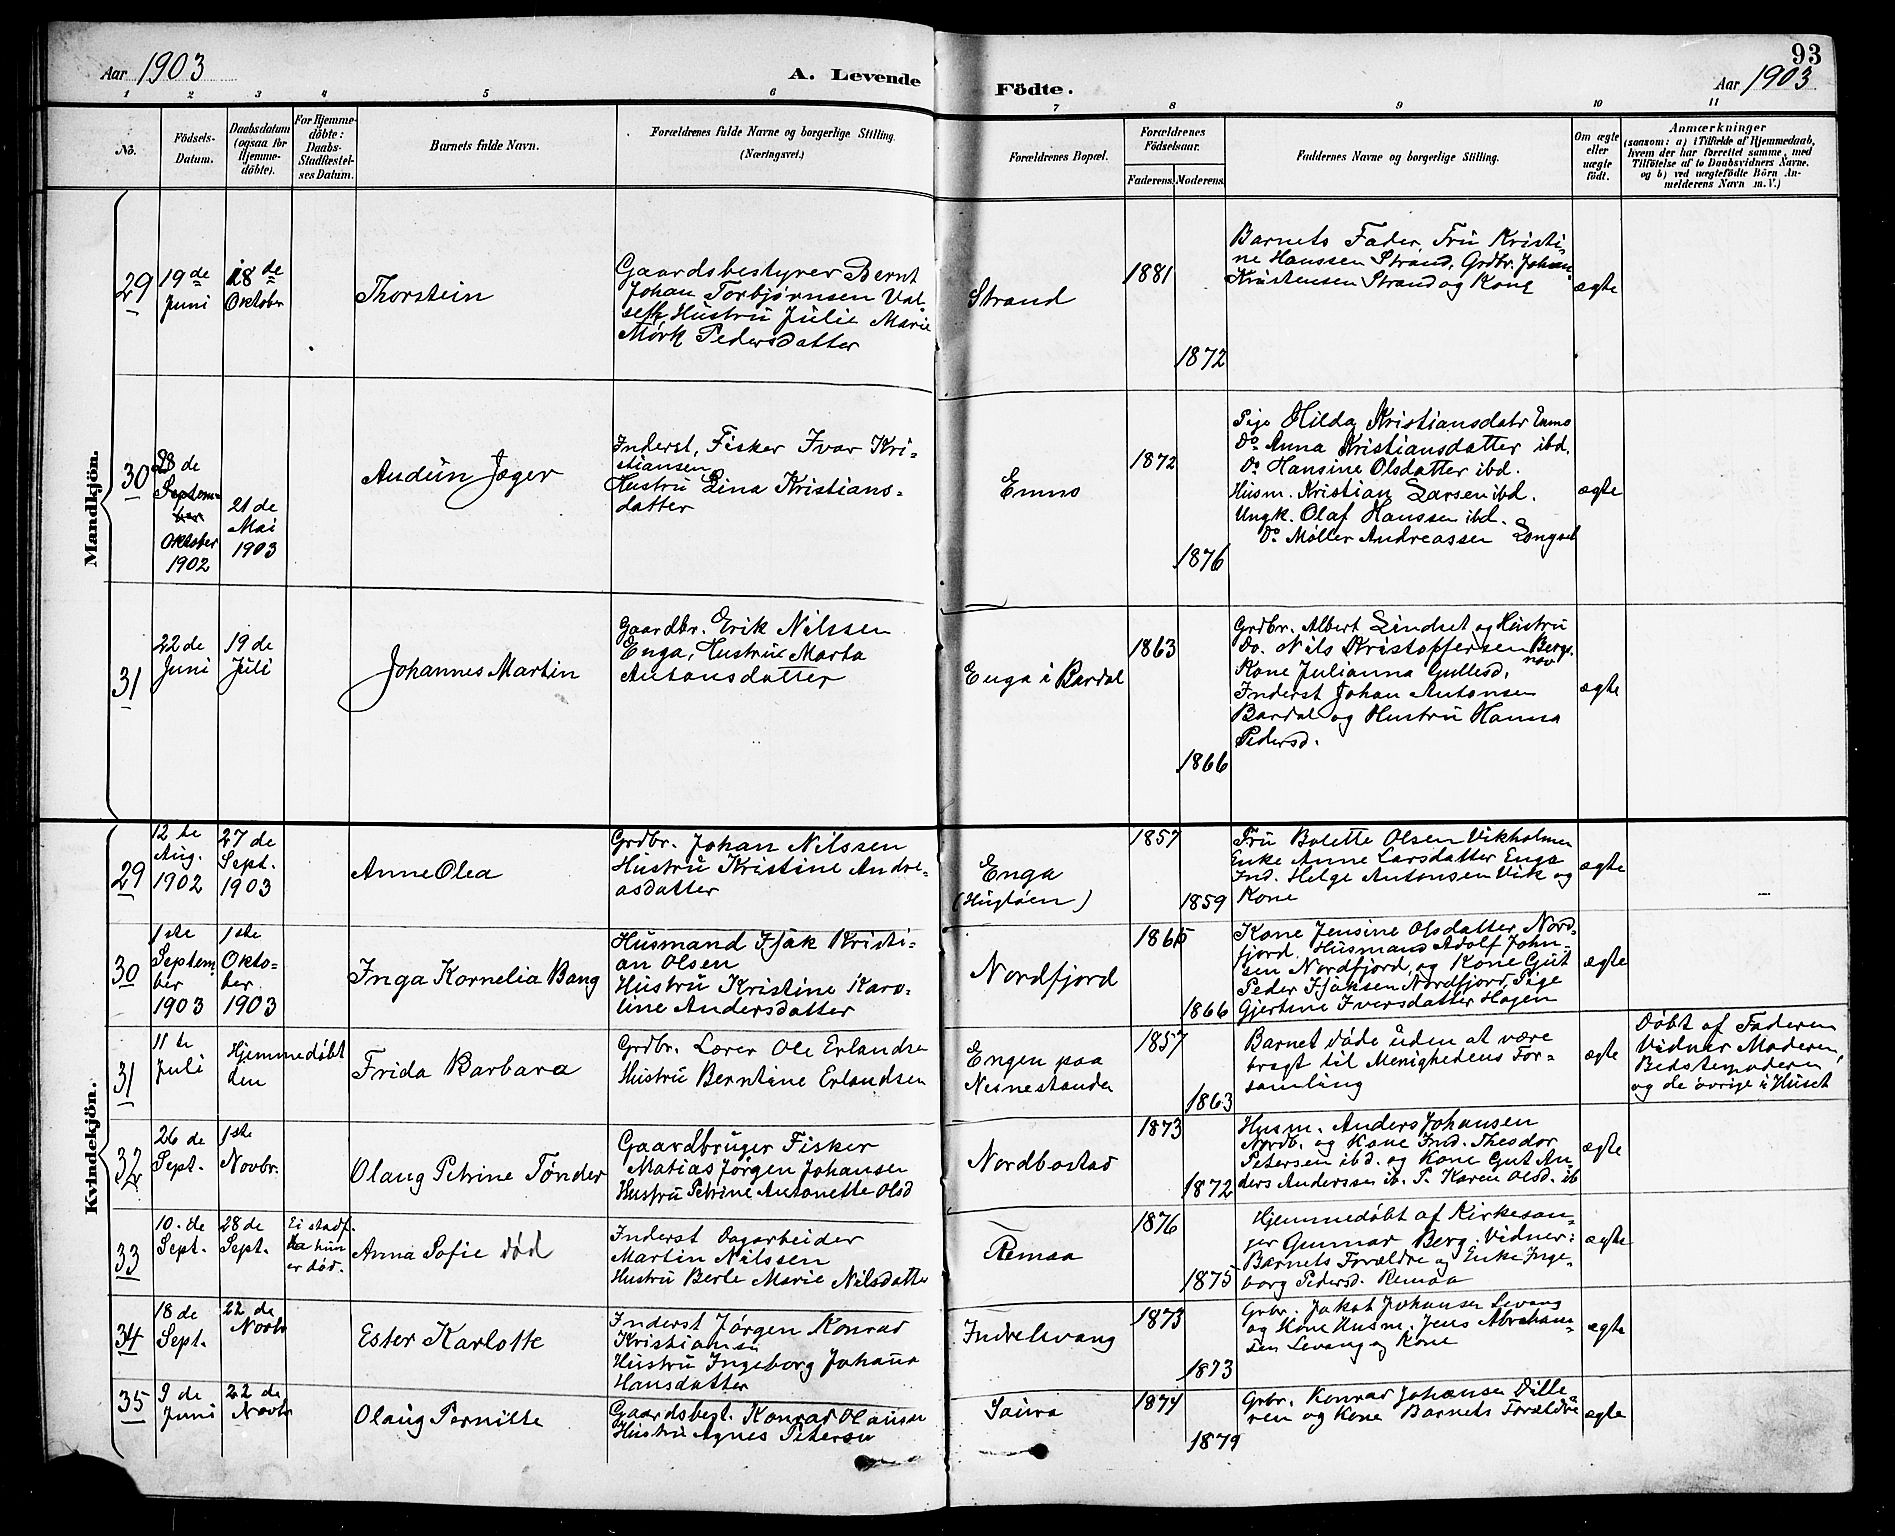 Aar 1903
A. Levende
Födte.
93
Aar 1903
1 2 3 4 5 6 7 8 9 10 11
No.
Födsels-
Datum.
Daabsdatum
(ogsaa for
Hjemme-
döbte).
For Hjemme-
döbte:
Daabs-
Stadfæstel-
ses Datum.
Barnets fulde Navn.
Forældrenes fulde Navne og borgerlige Stilling
(Næringsvei.)
Forældrenes Bopæl.
Forældrenes
Födselsaar.
Faderens.
Moderens.
Faddernes Navne og borgerlige Stilling.
Om ægte
eller
uægte
födt.
Anmærkninger
(saasom: a) i Tilfælde af Hjemmedaab,
hvem der har forrettet samme, med
Tilföielse af to Daabsvidners Navne,
og b) ved uægtefödte Börn An-
melderens Navn m.V.)
Mandkjön.
29
19de
Juni
18de
Oktobr
Thorstein
Gaardsbestyrer Bernt
Johan Torbjørnsen Val
Hustru Julie Marie
Mørk Pedersdatter
Strand
1881
1872
Barnets Fader, Fru Kristi-
ne Hanssen Strand, Grdbr. Johan
Kristensen Strand og Kone
ægte
30
28 de
Septem-
ber
Oktober
1902
21 de
Mai
1903
Audun Jæger
Inderst, Fisker Ivar Kri-
stiansen
Hustru Lina Kristians-
datter
Emno
1872
1876
Pige Hilda Kristiansdatr Emno
Do Anna Kristiansdatter ibd.
Do Hansine Olsdatter ibd.
Husm. Kristian Larsen ibd.
Ungk. Olaf Hanssen ibd.
Do Møller Andreassen Longset
ægte
31
22 de
Juni
19 de
Juli
Johannes Martin
Gaardbr. Erik Nilssen
Enga, Hustru Marta
Antonsdatter
Enga i Bardal
1863
1866
Grdbr. Albert Lindset og Hustru
Do. Nils Kristoffersen Bergs-
nov
Kone Julianna Gullesd.
Inderst Johan Antonsen
Bardal og Hustru Hanna
Pedersd.
ægte
Kvindekjön.
29
12 te
Aug.
1902
27 de
Sept.
1903
Anne Olea
Grdbr. Johan Nilssen
Hustru Kristine Andre-
asdatter
Enga
(Hugløen)
1857
1859
Fru Bolette Olsen Vikholmen
Enke Anne Larsdatter Enga
Ind. Helge Antonsen Vik og
Kone
ægte
–
30
1ste
Septem
ber
1903
1ste
Okto-
ber
1903
Inga Kornelia Bang
Husmand Isak Kristi-
an Olsen
Hustru Kristine Karo-
line Andersdatter
Nordfjord
1865
1866
Kone Jensine Olsdatter, Nord-
fjord, Husmand Adolf John-
sen Nordfjord, og Kone Gut
Peder Isaksen Nordfjord, Pige
Gjertine Iversdatter Hagen
ægte
31
11 te
Juli
Hjemmedøbt
den
Frida Barbara
Grdbr. Lærer Ole Erlandsen
Hustru Berntine Erlandsen
Engen paa
Nesnestanden
1857
1863
Barnet døde uden at være
bragt til Menighedens For-
samling
ægte
Døbt af Faderen
Vidner Moderen,
Bedstemoderen
og de øvrige i Huset
32
26 de
Sept.
1ste
Novbr.
Olaug Petrine Tønder
Gaardbruger Fisker
Matias Jørgen Johansen
Hustru Petrine Antonette Olsd
Nordbostad
1873
1872
Husm. Anders Johansen
Nordb. og Kone Ind. Theodor
Petersen ibd. og Kone Gut An-
ders Anderssen ib. P. Karen Olsd. ib
ægte
33
10. de
Sept.
28 de
Sept.
Ei stadf.
da hun
er død.
Anna Sofie død
Inderst Dagarbeider
Martin Nilssen
Hustru Berle Marie Nilsdatter
Remaa
1876
1875
Hjemmedøbt af Kirkesan-
ger Gunnar Berg. Vidner:
Barnets Forældre og Enke Inge-
borg Pedersd. Remaa
ægte
34
18 de
Sept.
22 de
Novbr
Ester Karlotte
Inderst Jørgen Konrad
Kristiansen
Hustru Ingeborg Johanna
Hansdatter
Indrelevang
1873
1873
Grbr. Jakob Johansen Levang
og Kone Husm. Jens Abraham-
sen Levang og Kone
ægte
35
9 de
Juni
22 de
Novbr
Olaug Pernille
Gaardsbest. Konrad Olausen
Hustru Agnes Petersen
Saura
1874
1879
Grbr. Konrad Johansen Dille-
ren og Kone Barnets Forældre
ægte